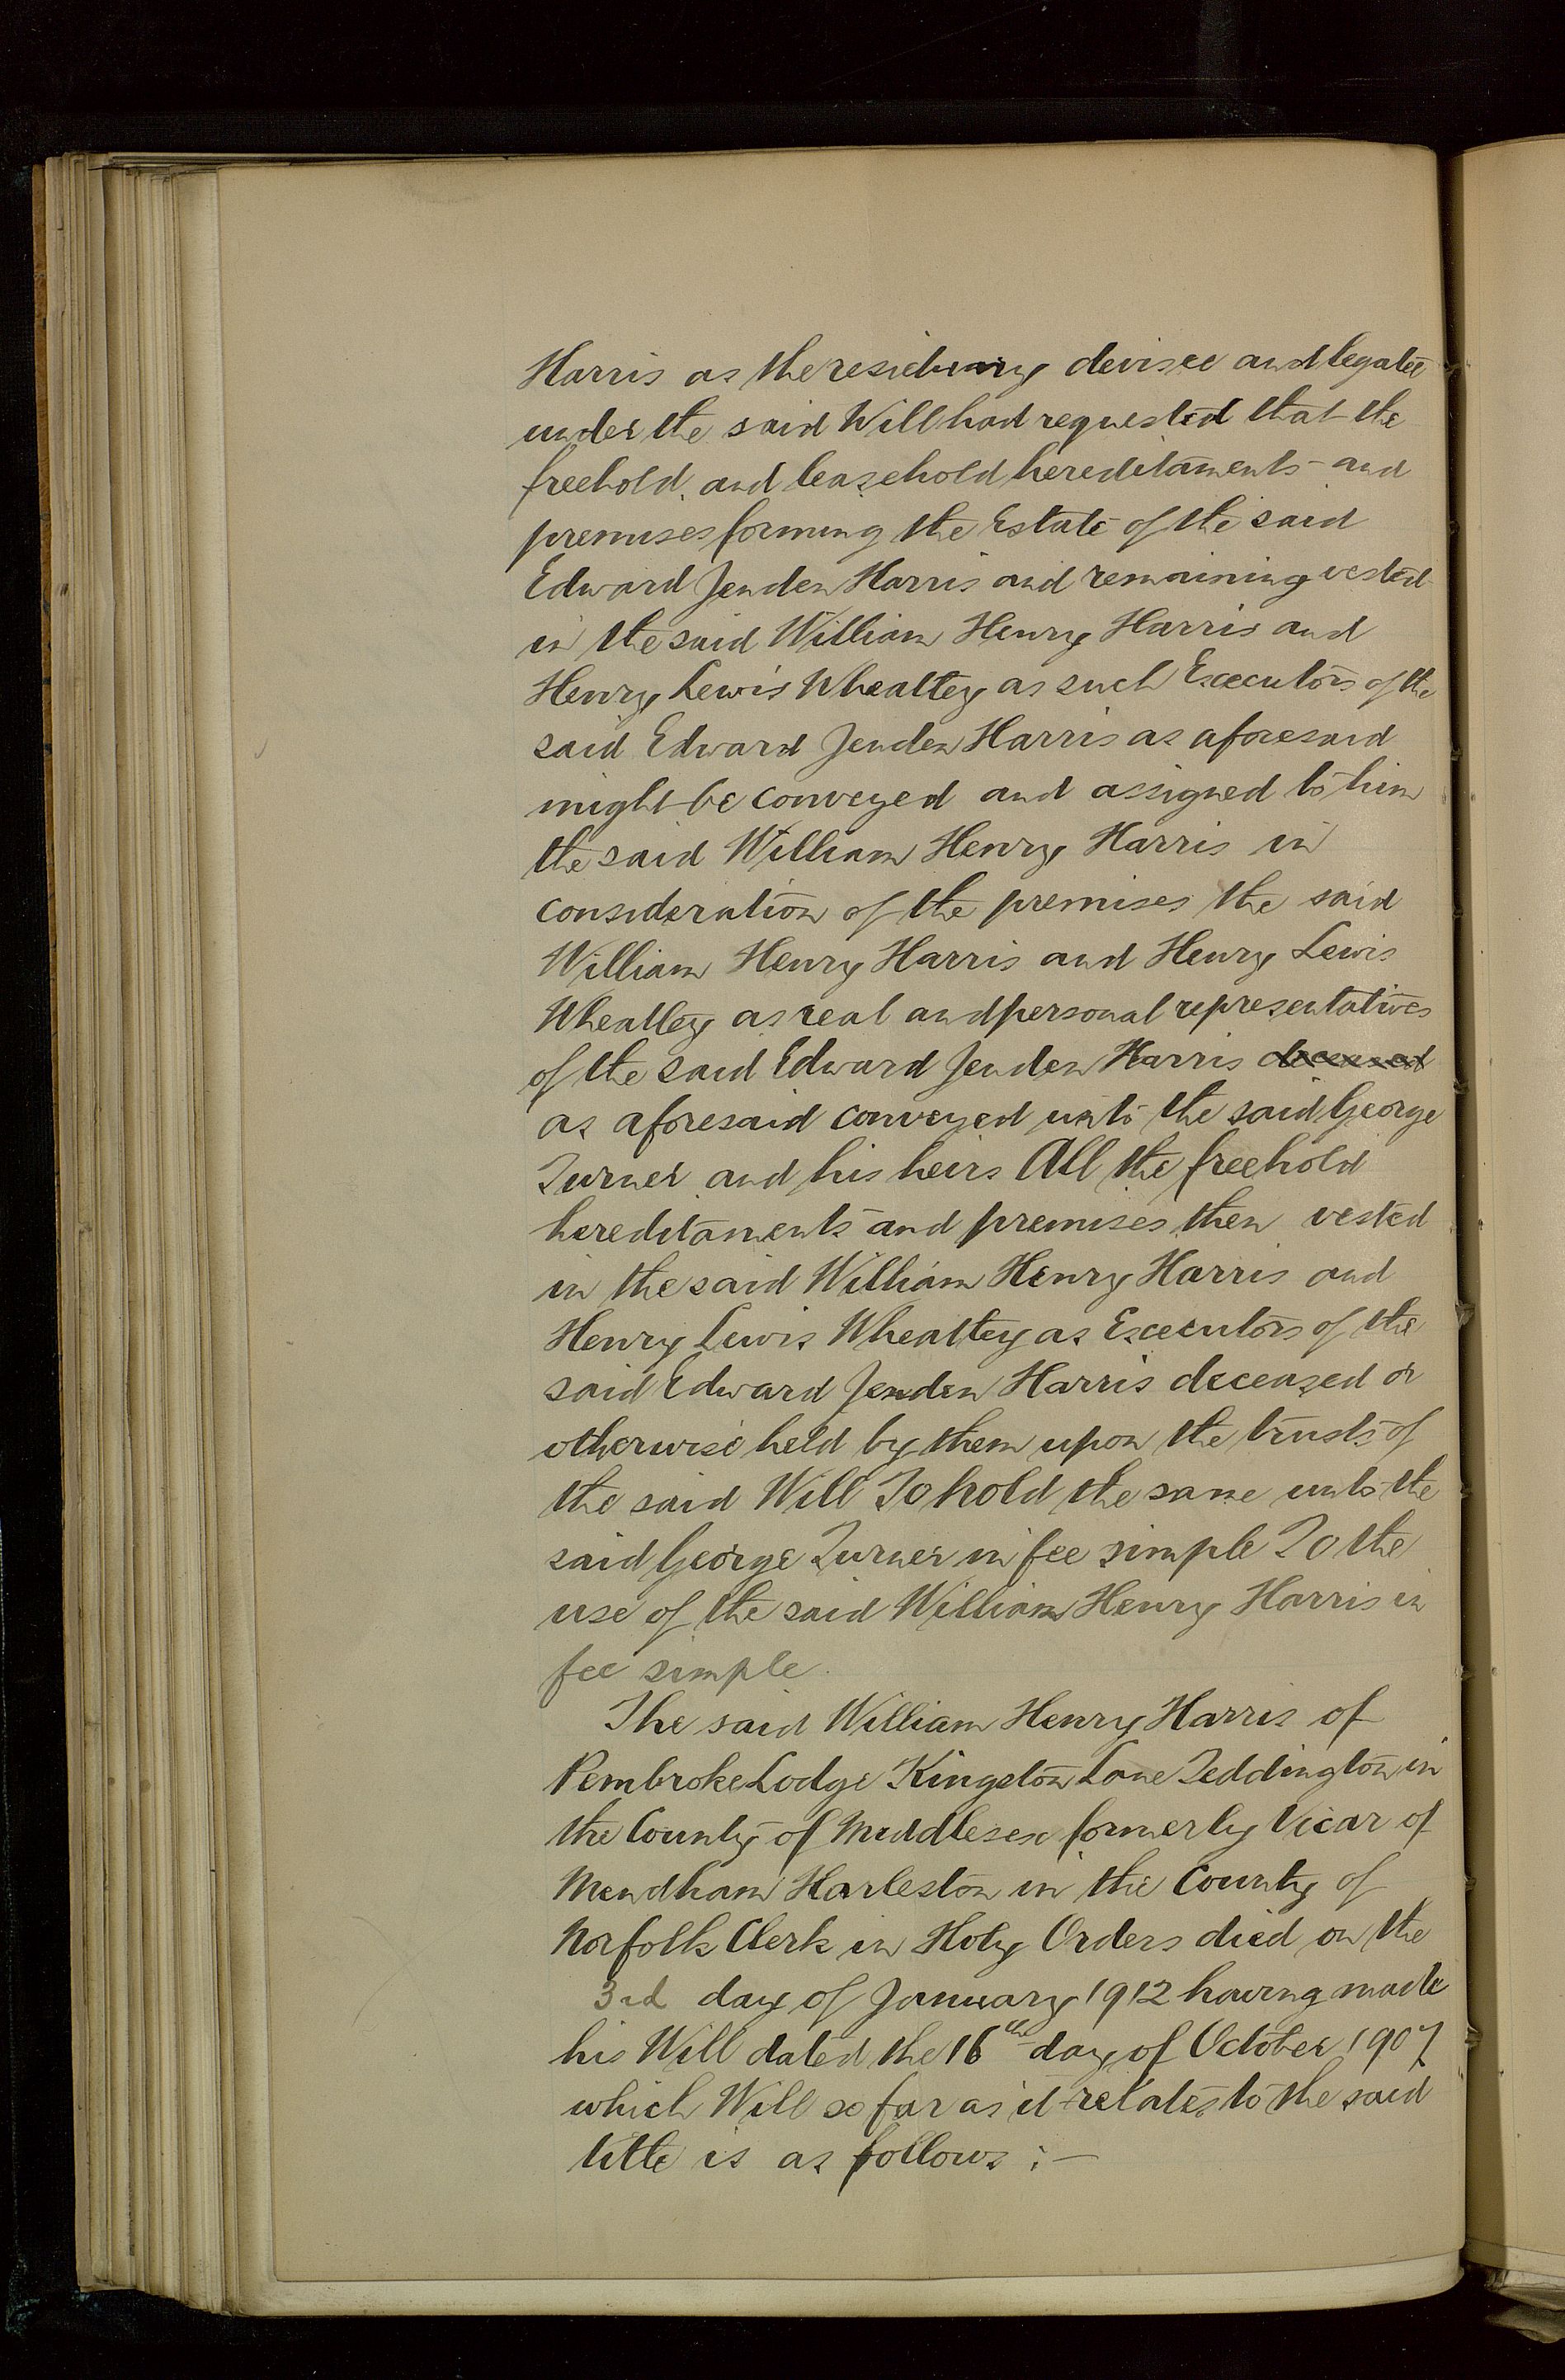 Harris as the residuary devisee and legatee
under the said Will had requested that the
freehold and leasehold hereditaments and
premises forming the Estate of the said
Edward Jenden Harris and remaining vested
in the said William Henry Harris and
Henry Lewis Wheatley as such Executors of the
said Edward Jenden Harris as aforesaid
might be conveyed and assigned to him
the said William Henry Harris in
consideration of the premises the said
William Henry Harris and Henry Lewis
Wheatley as real and personal representatives
of the said Edward Jenden Harris deceased
as aforesaid conveyed unto the said George
Turner and his heirs All the freehold
hereditaments and premises then vested
in the said William Henry Harris and
Henry Lewis Wheatley as Executors of the
said Edward Jenden Harris deceased or
otherwise held by them upon the trusts of
the said Will To hold the same unto the
said George Turner in fee simple To the
use of the said William Henry Harris in
fee simple.
The said William Henry Harris of
Pembroke Lodge Kingston Lane Teddington in
the County of Middlesex formerly Vicar of
Mendham Harleston in the County of
Norfolk Clerk in Holy Orders died on the
3rd day of January 1912 having made
his Will dated the 16th day of October 1907
which Will so far as it relates to the said
title is as follows :—